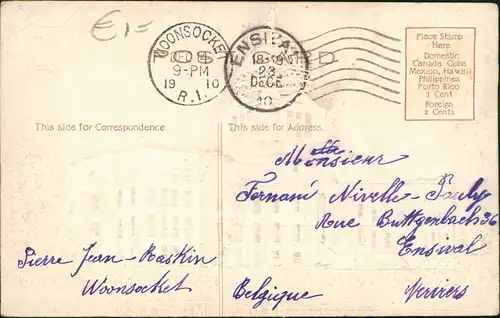 €1=
WOONSOCKET
DEC
9-PM
1910
R.I.
ENSIVAL
18-19
23
DECE
10
POST CARD
Place Stamp
Here
Domestic
Canada, Cuba
Mexico, Hawaii
Philippines
Porto Rico
1 Cent
Foreign
2 Cents
This side for Correspondence.
This side for Address.
Monsieur
Fernand Nivelle-
Rue Buttgenbach 36
Ensival
Verviers
Belgique
Pierre Jean-Raskin
Woonsocket